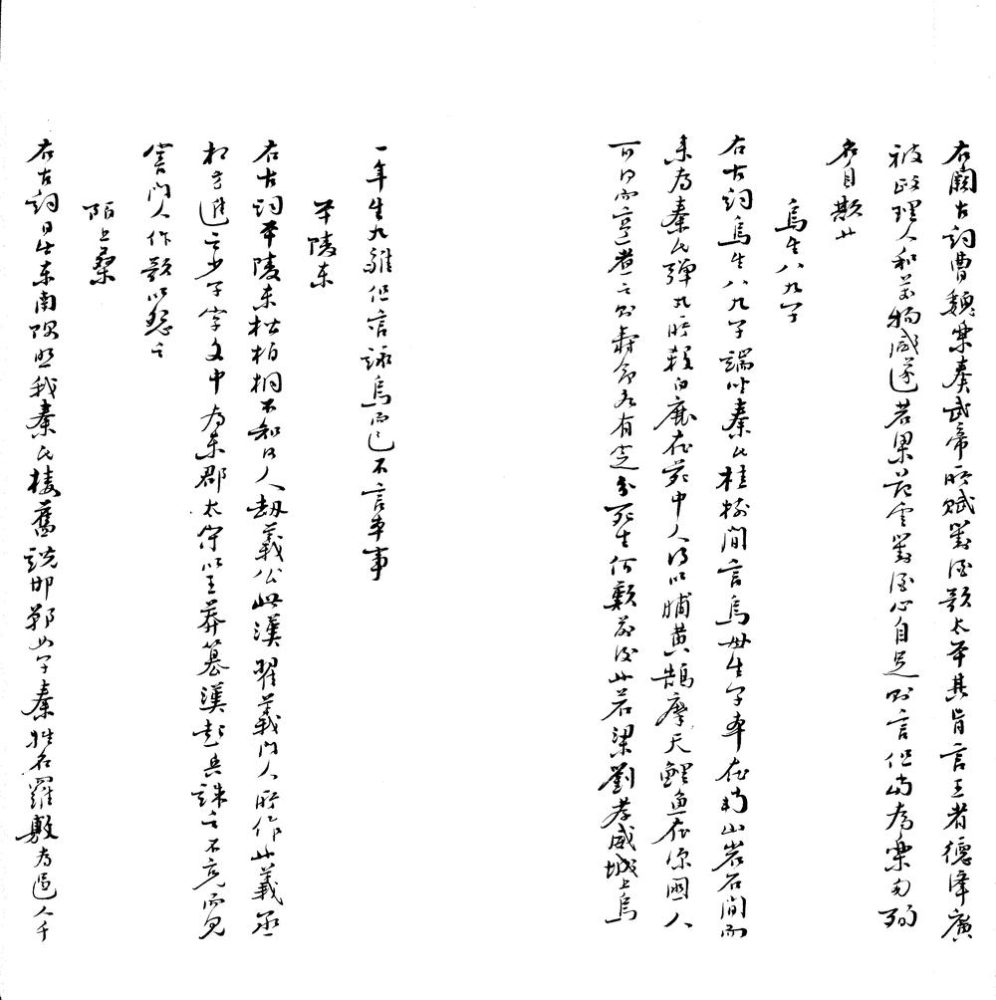 右闕古詞曹魏樂奏武帝所賦對酒歌太平其旨言王者德澤廣
被政理人和萬物咸遂若梁范雲對酒心自足則言但當為樂勿殉
名自欺也
烏生八九子
右古詞烏生八九子端坐秦氏桂樹間言烏母生子本在南山巖石間而
來為秦氏彈丸所殺白鹿在苑中人得以脯黃鵠摩天鯉魚在深淵人
可得而烹煮之則壽命各有定分死生何歎前後也若梁劉孝威城上烏
一年生九雛但言詠烏而已不言本事
平陵東
右古詞平陵東松柏桐不知何人劫義公此漢翟義門人所作也義丞
相方進之少子字文中為東郡太守以王莽篡漢起兵誅之不克而見
害門人作歌以怨之
陌上桑
右古詞日出東南隅照我秦氏樓舊說邯鄲女子秦姓名羅敷為邑人千